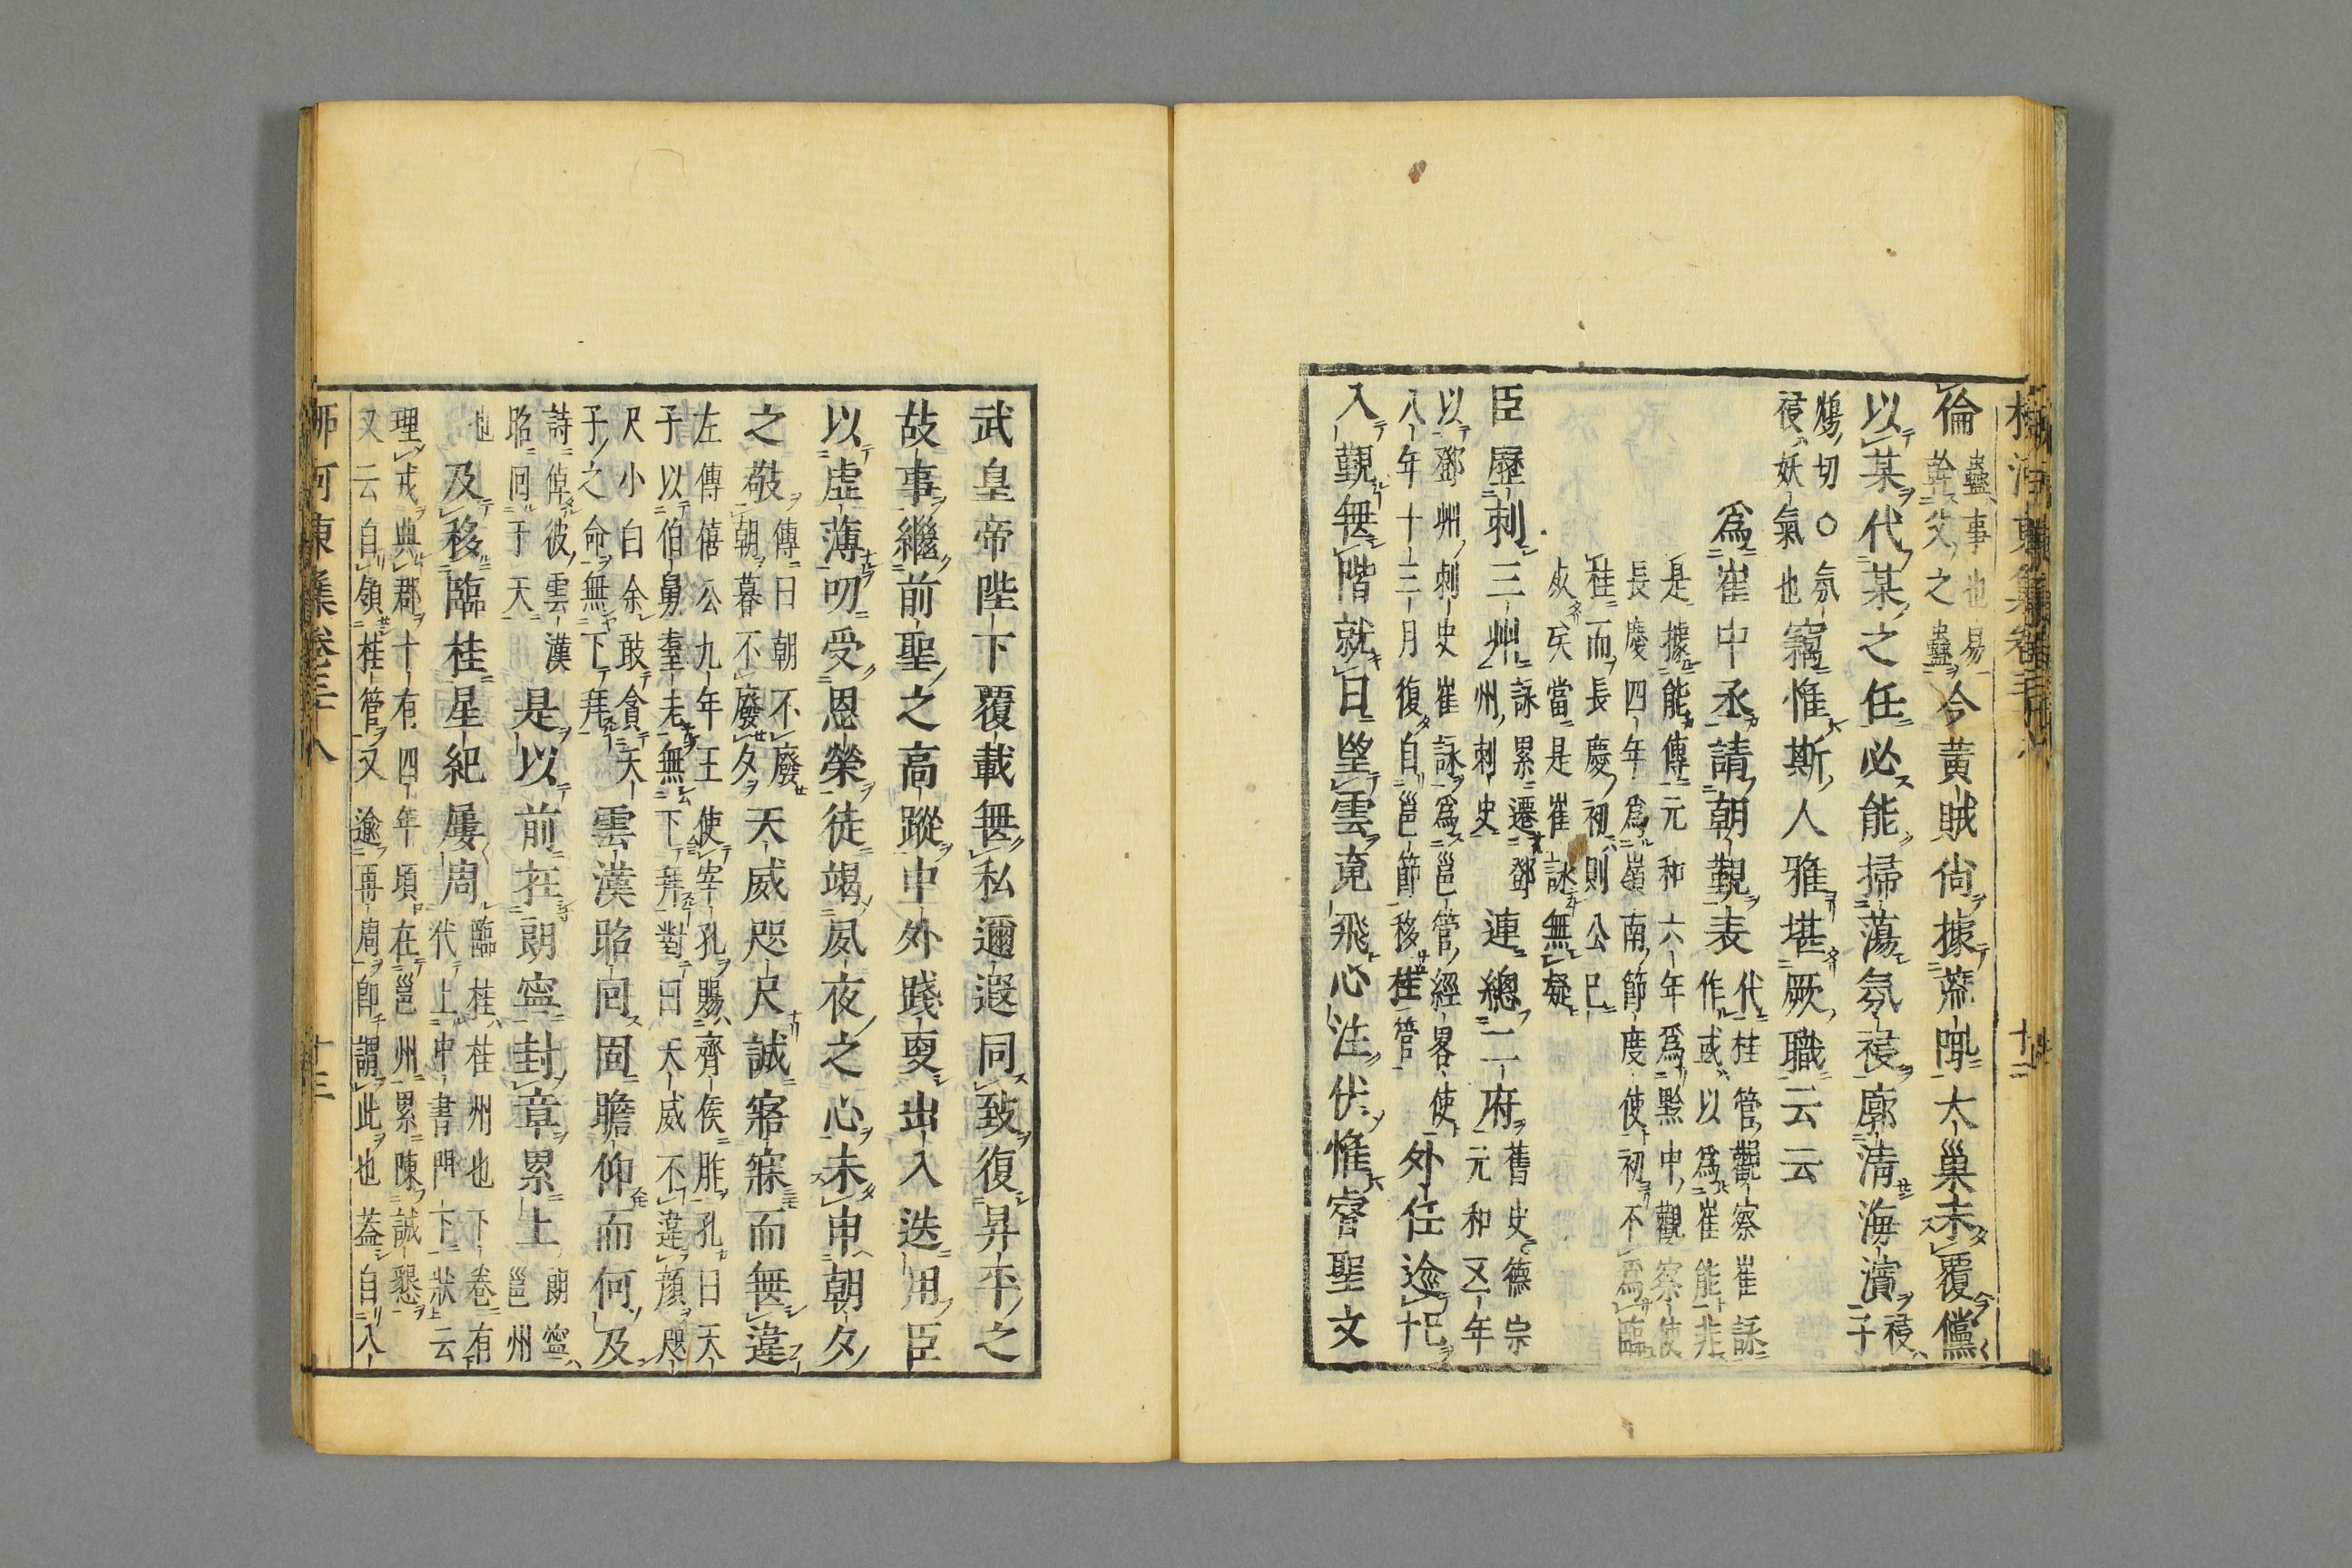 倫
蠱事也易
幹父之蠱
今黃賊尙據陬大巢未覆儻
以某代某之任必能掃蕩氛祲廓清海濱
祲
子
鴆切○氛
祲妖氣也
竊惟斯人雅堪厥職云云
爲崔中丞請朝覲表
代桂管觀察崔詠
作或以爲崔能非
是據能傳元和六年爲黔中觀察使
長慶四年爲嶺南節度使初不爲臨
桂而長慶初則公已
歿矣當是崔詠無疑
臣歷刺三州
詠累遷鄧
州刺史
連總二府
舊史德宗
元和五年
以鄧州刺史崔詠爲邕管經畧使
八年十二月復自邕節移桂管
外任逾紀
入覲無階就日望雲竟飛心注伏惟睿聖文
武皇帝陛下覆載無私邇遐同致復昇平之
故事繼前聖之高蹤中外踐更出入迭用臣
以虛薄叨受恩榮徒竭夙夜之心未申朝夕
之敬
傳曰朝不廢
朝暮不廢夕
天威咫尺誠寤寐而無違
左傳僖公九年王使宰孔賜齊侯胙孔曰天
子以伯舅耋老無下拜對曰天威不違顏咫
尺小白余敢貪天
子之命無下拜
雲漢昭回固瞻仰而何及
詩倬彼雲漢
昭囘于天
是以前在朗寧封章累上
朗寧
邕州
也
及移臨桂星紀屢周
臨桂桂州也下卷有
代上中書門下狀云
理戎典郡十有四年頃在邕州累陳誠懇
又云自領桂管又逾再周卽謂此也葢自入
柳河東集卷三十八
十三